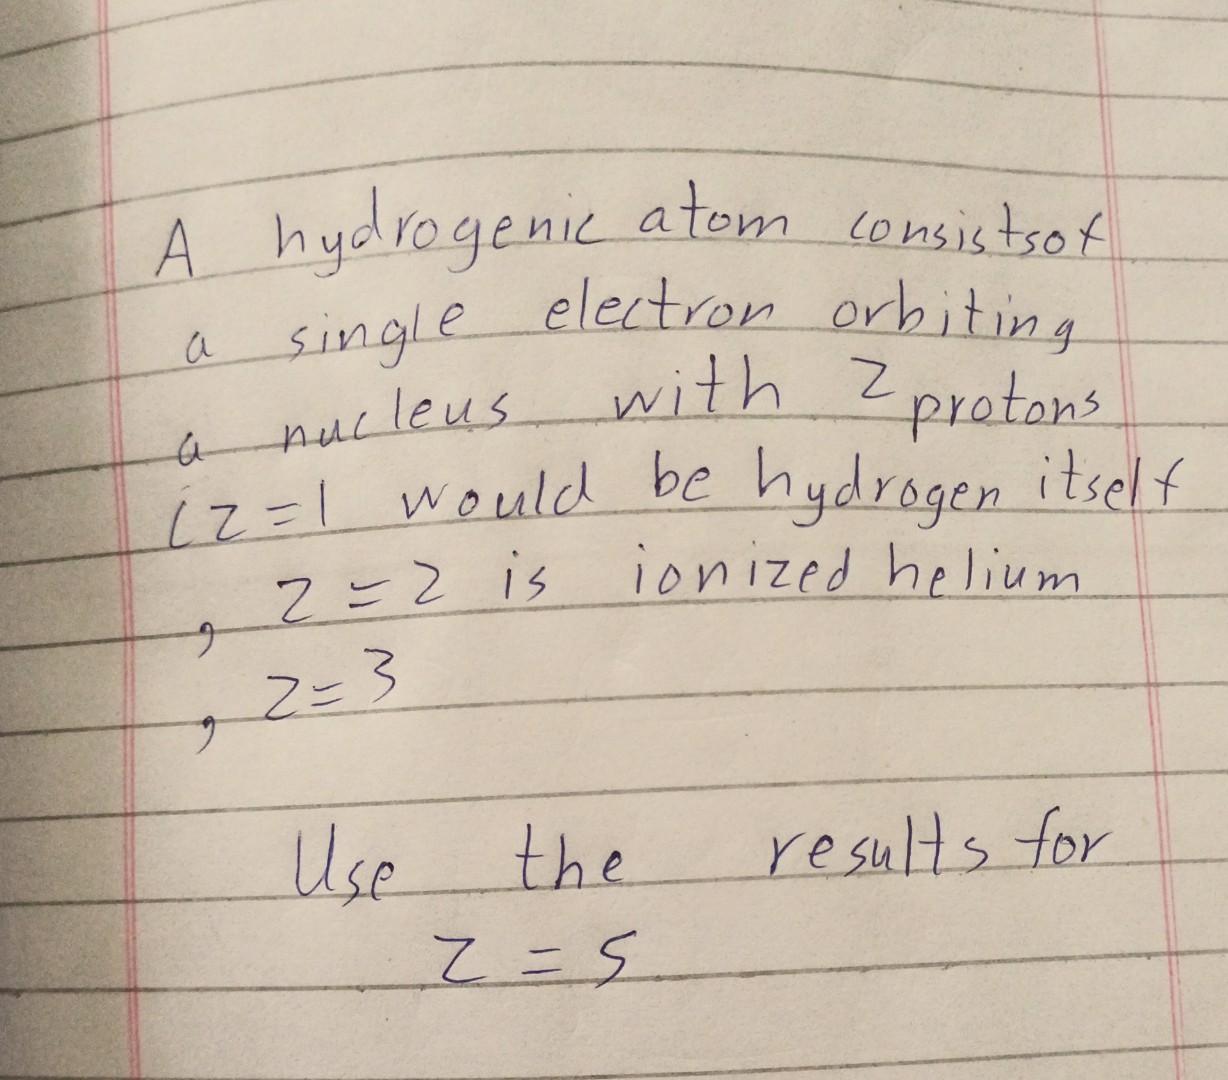 A hydrogenic atom consistsof
a single electron orbiting
a nucleus with Z protons
(Z=1 would be hydrogen itself
, Z=2 is ionized helium
, Z=3
Use the results for
Z=5